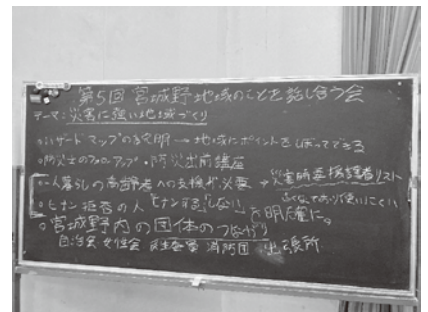 第5回 宮城野地域のことを話し合う会
テーマ:災害に強い地域づくり
○ハザードマップの説明 → 地域にポイントをしぼってできる
○防災士のフォローアップ・防災出前講座
○一人暮らしの高齢者への支援が必要 → 災害時要援護者リスト
○ヒナン拒否の人 「ヒナンする」「しない」を明確に。
○宮城野内の団体のつながり
自治会 女性会 民生委員 消防団 出張所